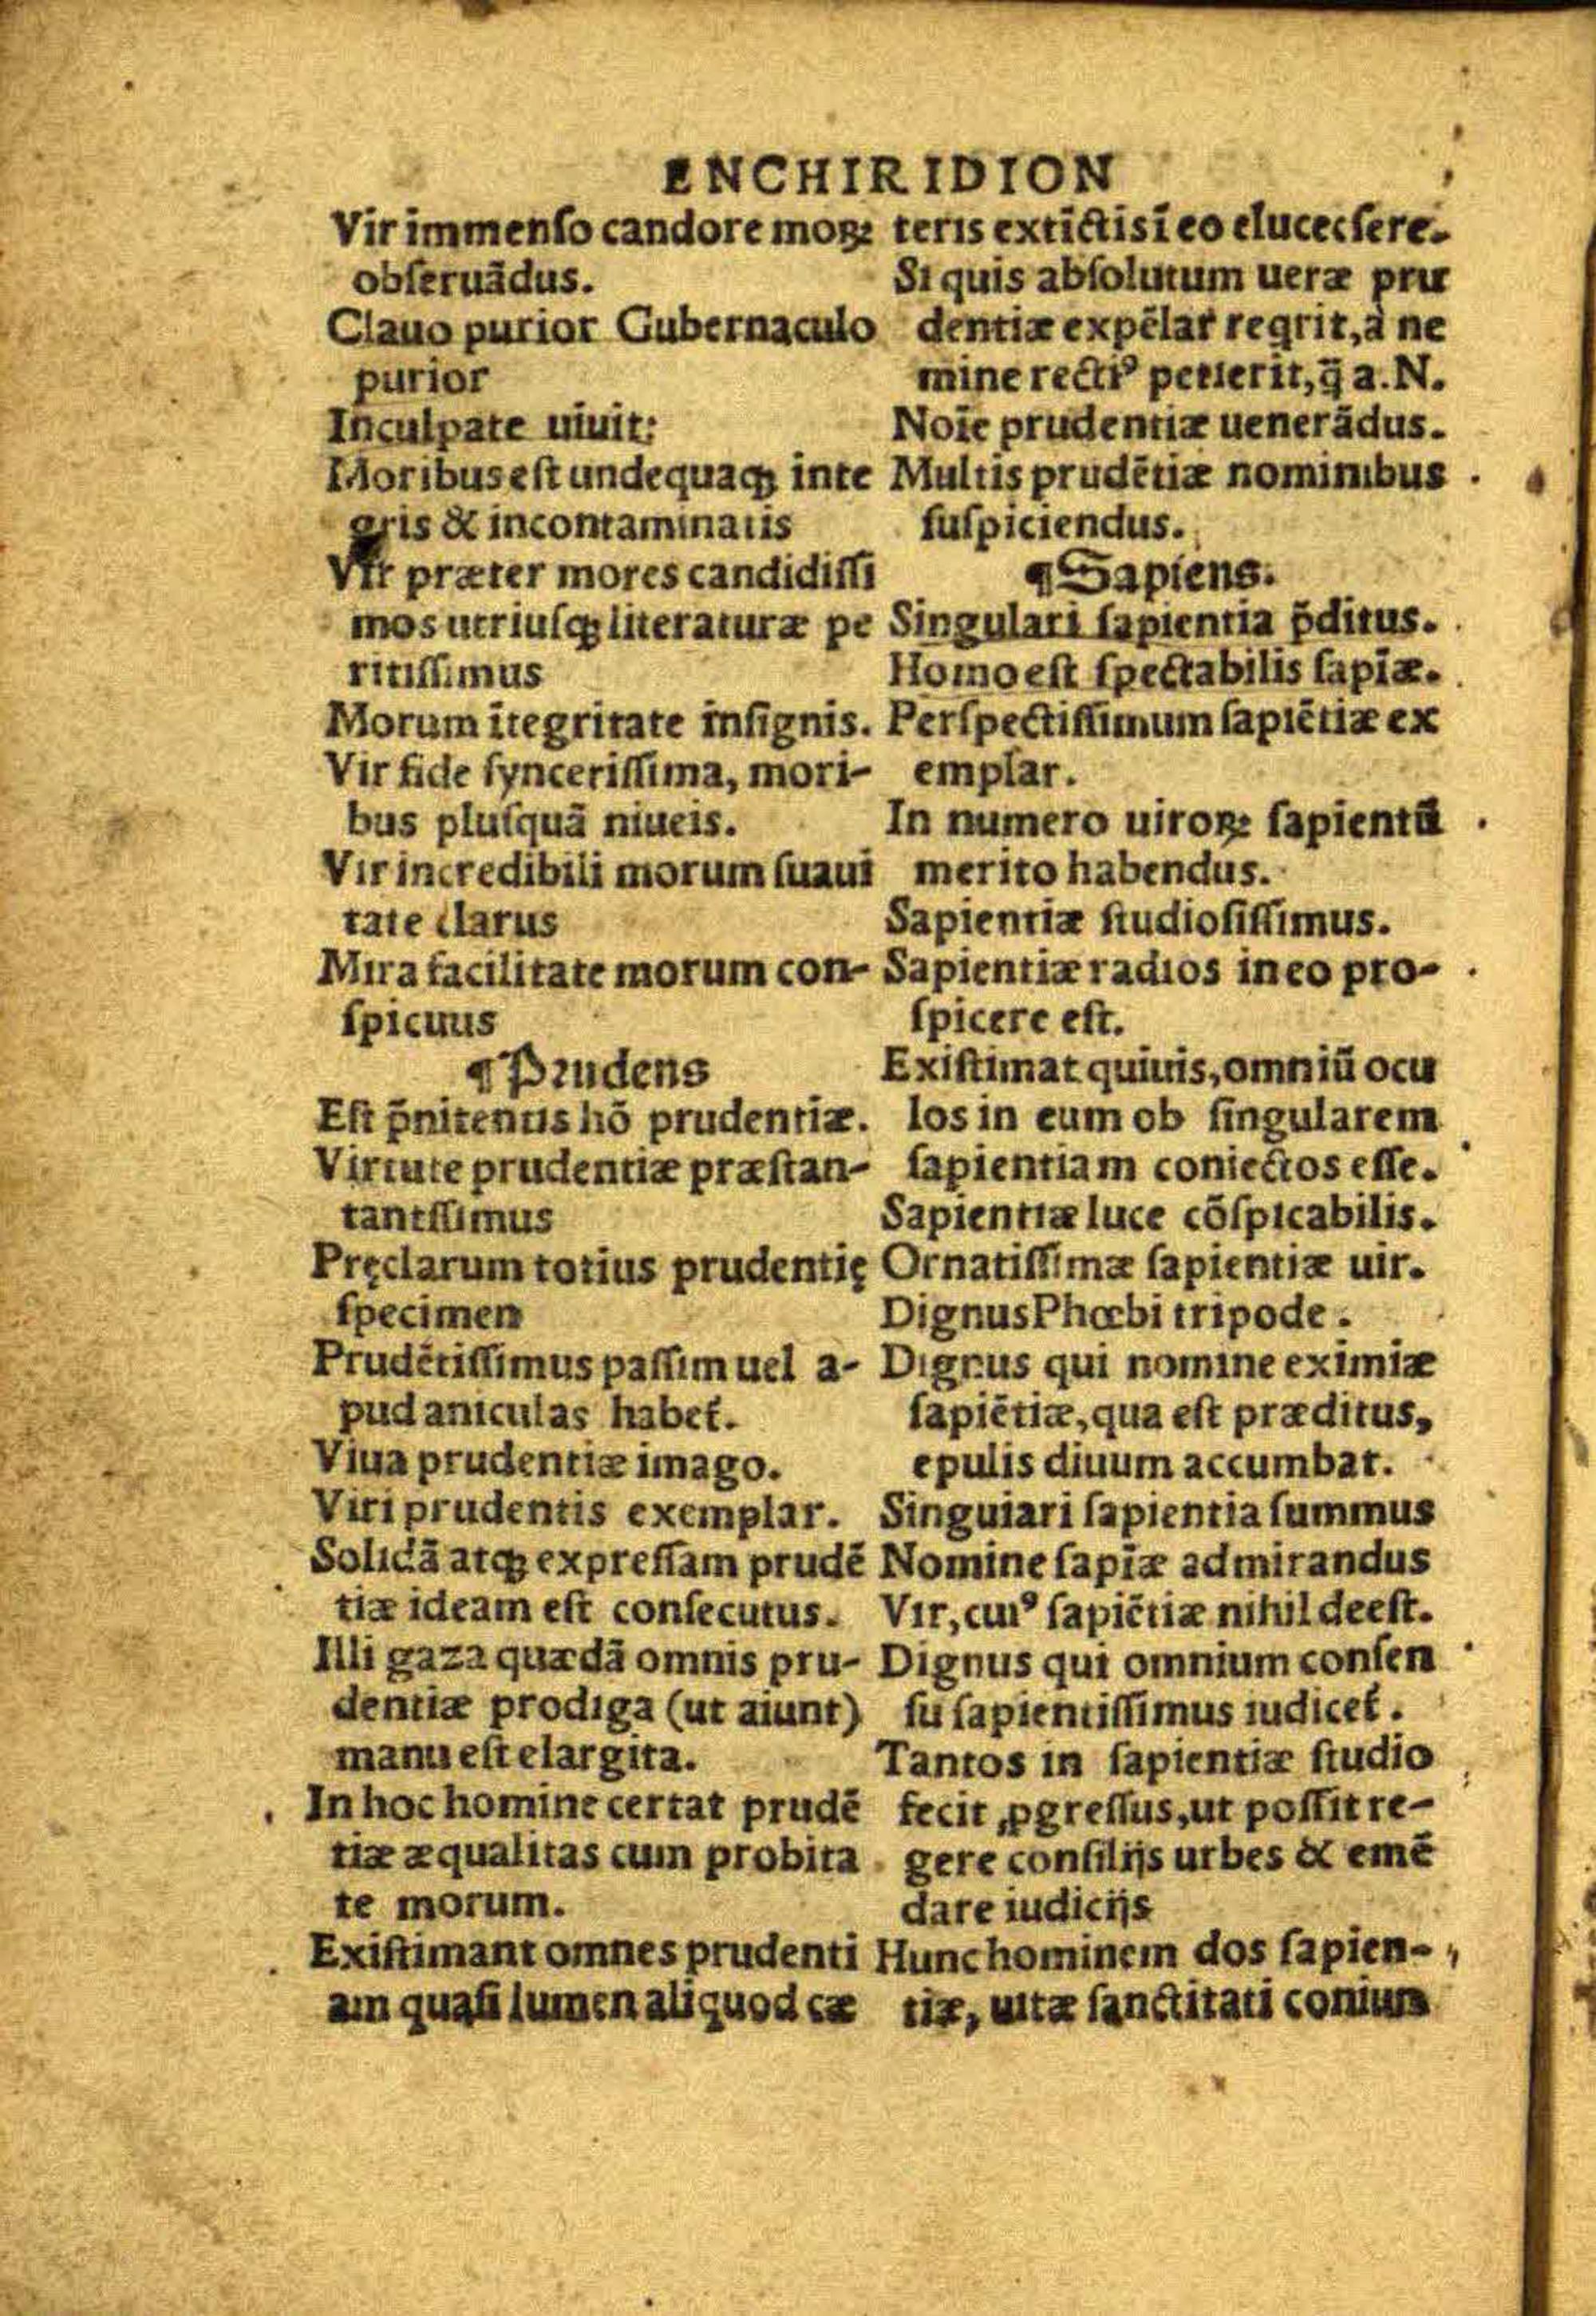 ENCHIRIDION
Vir immenſo candore moꝝ
obſeruãdus.
Clauo purior Gubernaculo
purior
Inculpate uiuit:
Moribus eſt undequaqꝫ inte
gris & incontaminatis
Vir præter mores candidiſſi
mos utriuſqꝫ literaturæ pe
ritiſſimus
Morum ĩtegritate inſignis.
Vir fide ſynceriſſima, mori-
bus pluſquã niueis.
Vir incredibili morum ſuaui
tate clarus
Mira facilitate morum con-
ſpicuus
¶Prudens
Eſt p̃nitentis hõ prudentiæ.
Virtute prudentiæ præſtan-
tantſſimus
Pręclarum totius prudentię
ſpecimen
Prudẽtiſſimus paſſim uel a-
pud aniculas habet̃.
Viua prudentiæ imago.
Viri prudentis exemplar.
Solidã atqꝫ expreſſam prudẽ
tiæ ideam eſt conſecutus.
Illi gaza quædã omnis pru-
dentiæ prodiga (ut aiunt)
manu eſt elargita.
In hoc homine certat prudẽ
tiæ æqualitas cum probita
te morum.
Exiſtimant omnes prudenti
am quaſi lumen aliquod cæ
teris extĩctis ĩ eo elucecſere.
Si quis abſolutum ueræ pru
dentiæ expẽlar̃ reqrit, a ne
mine rectiꝰ petierit, q̃ a .N.
Noĩe prudentiæ uenerãdus.
Multis prudẽtiæ nominibus
ſuſpiciendus.
¶Sapiens.
Singulari ſapientia p̃ditus.
Homo eſt ſpectabilis ſapĩæ.
Perſpectiſſimum ſapiẽtiæ ex
emplar.
In numero uiroꝝ ſapientũ
merito habendus.
Sapientiæ ſtudioſiſſimus.
Sapientiæ radios in eo pro-
ſpicere eſt.
Exiſtimat quiuis, omniũ ocu
los in eum ob ſingularem
ſapientiam coniectos eſſe.
Sapientiæ luce cõſpicabilis.
Ornatiſſimæ ſapientiæ uir.
Dignus Phœbi tripode.
Dignus qui nomine eximiæ
ſapiẽtiæ, qua eſt præditus,
epulis diuum accumbat.
Singulari ſapientia ſummus
Nomine ſapĩæ admirandus
Vir, cuiꝰ ſapiẽtiæ nihil deeſt.
Dignus qui omnium conſen
ſu ſapientiſſimus iudicet̃.
Tantos in ſapientiæ ſtudio
fecit ꝓgreſſus, ut poſſit re-
gere conſilijs urbes & emẽ
dare iudicijs
Hunc hominem dos ſapien-
tiæ, uitæ ſanctitati coniun